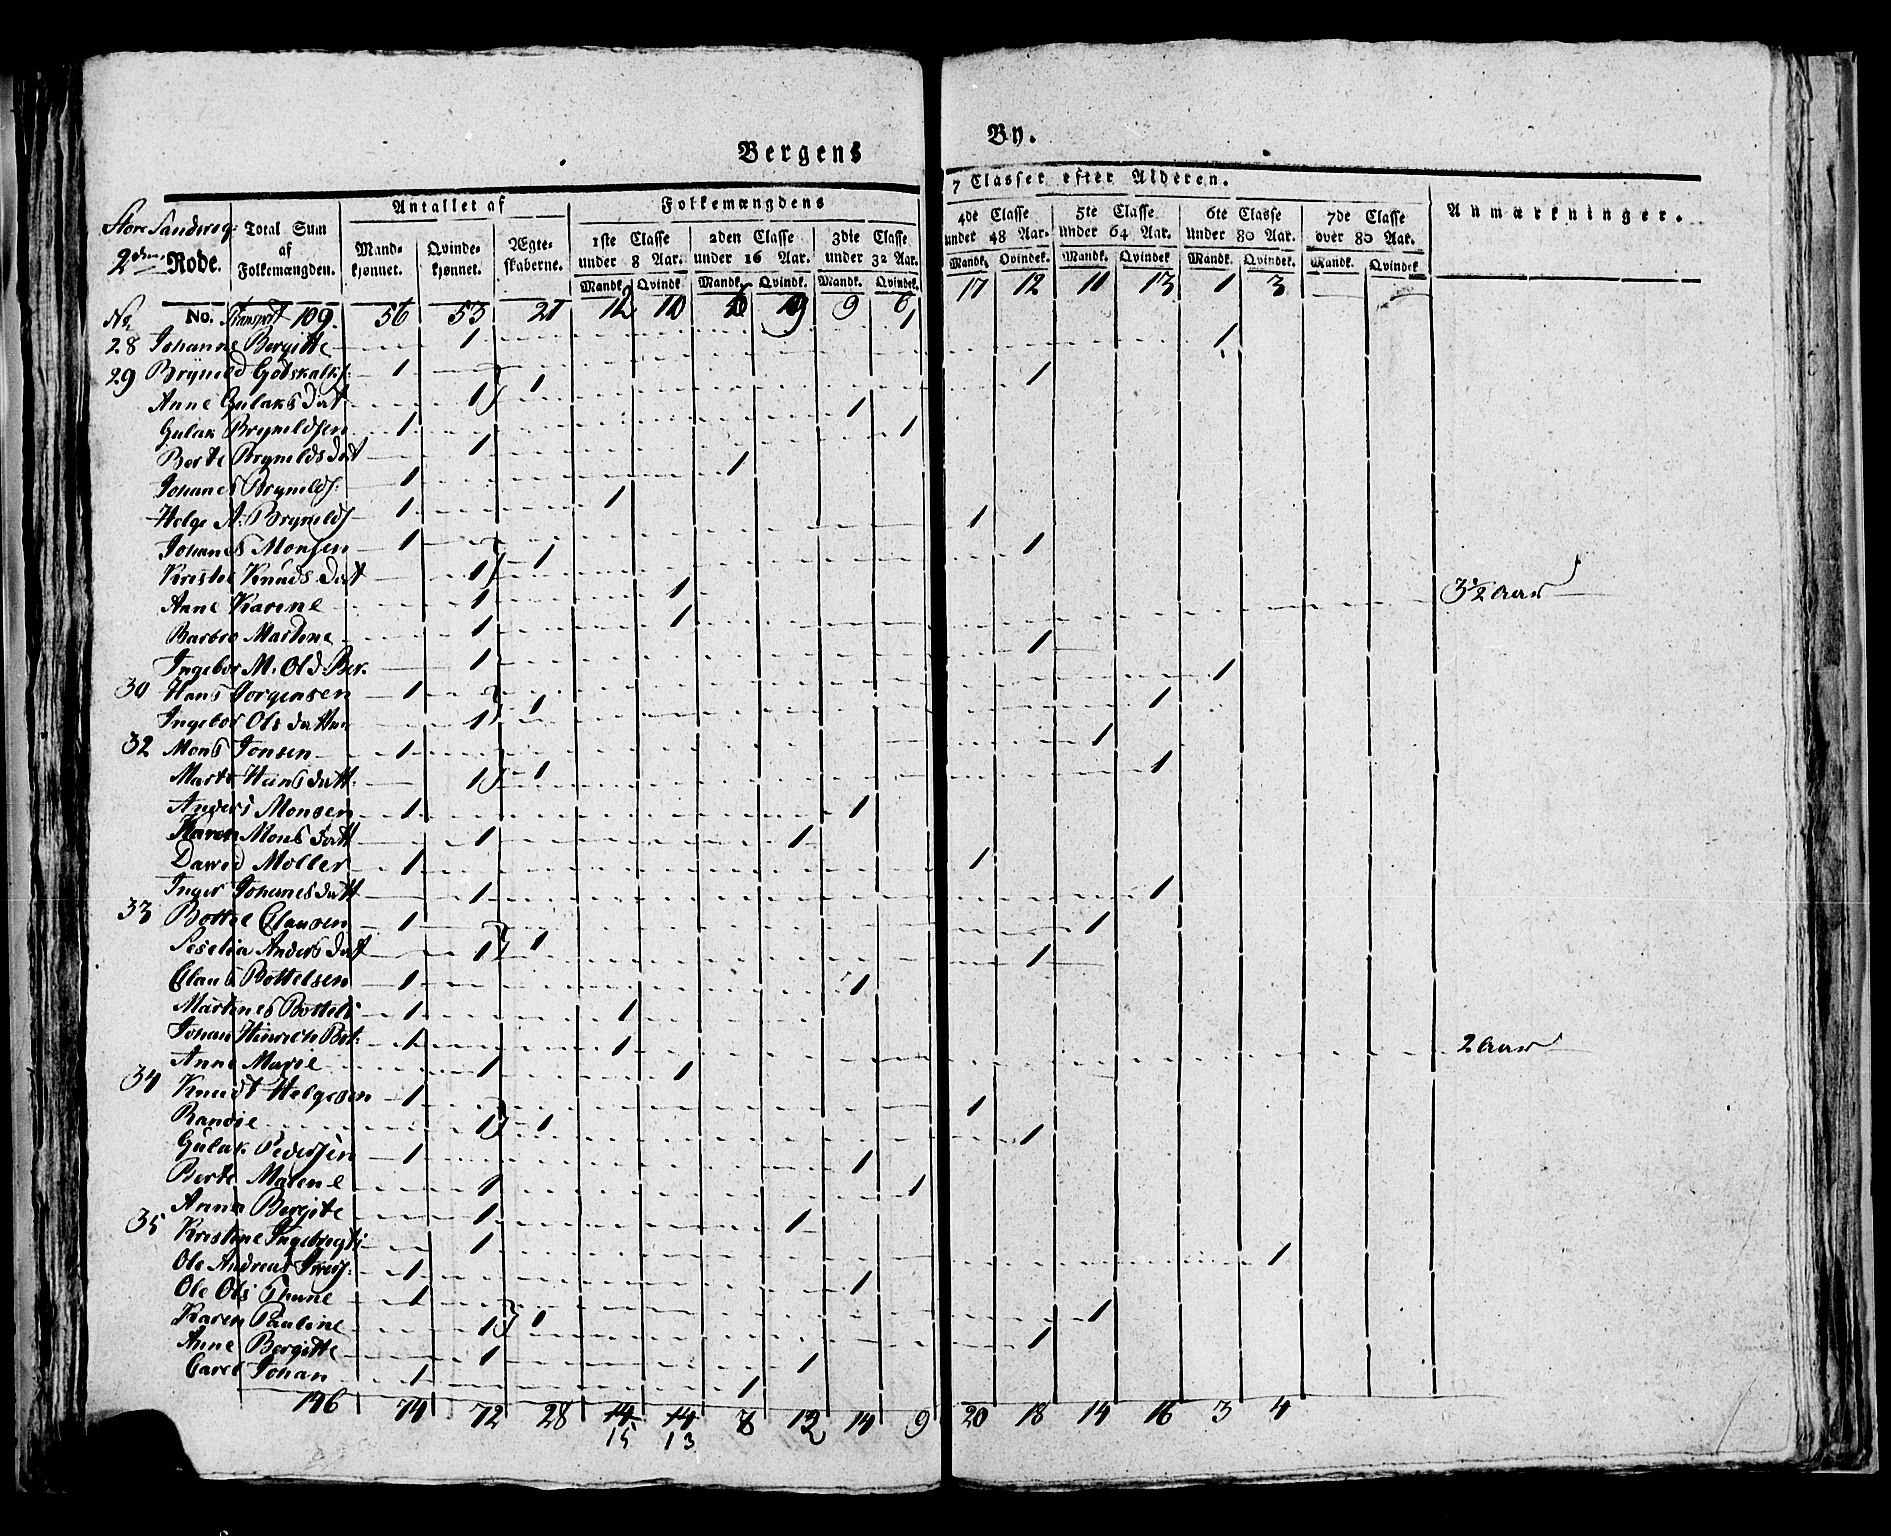 Bergens By.
Store Sandvig: 2den Rode.
Total Sum af Folkemængden.
Antallet af
Mandkjønnet. Qvindekjønnet. Ægteskaberne.
Folkemængdens 7 Classer efter Alderen.
1ste Classe under 8 Aar. 2den Classe under 16 Aar. 3die Classe under 32 Aar. 4de Classe under 48 Aar. 5te Classe under 64 Aar. 6te Classe under 80 Aar. 7de Classe over 80 Aar.
Anmærkninger.
Mandk. Qvindk. Mandk. Qvindk. Mandk. Qvindk. Mandk. Qvindk. Mandk. Qvindk. Mandk. Qvindk. Mandk. Qvindk.
No. No. Transport 109. 56 53 21 12 10 9 9 6 17 12 11 13 1 3
28 Johanne Bergitte 1 1
29 Bryneld Godskalks: 1 1
Anne Gulaks Datt 1 1 1
Gulak Bryneldsen 1 1
Berte Brynelds Datt 1 1
Johanes Brynelds: 1 1
Helge A: Brynelds 1 1
Johanes Monsen 1 1
Kristi Knuds Datt 1 1 1
Anne Karine 1 1 3 1/2 Aar
Barbro Martine 1 1
Ingebor M. Old. Ber. 1 1
30 Hans Jorgensen 1 1
Ingebor Ols datter 1 1 1
32 Mons Jonsen 1 1
Marte Hans datt: 1 1 1
Anders Monsen 1 1
Karen Mons datt 1 1
David Moller 1 1
Inger Johanes datt 1 1
33 Bottel Clausen 1 1
Seselia Anders datt 1 1 1
Claus Bottelsen 1 1
Martines Bottels 1 1
Johan Hinrich Bot: 1 1 2 Aar
Anne Marie 1 1
34 Knudt Helgesen 1 1
Randie 1 1 1
Gulak Pedersen 1 1
Berte Malene 1 1
Anna Bergite 1 1
35 Kristine Ingebregts 1 1
Ole Andreas Ivers: 1 1
Ole Ols Thune 1 1
Karen Pauline 1 1 1
Anne Bergitte 1 1
Carel Johan 1 1
146 74 72 28 14 14 8 12 14 9 20 18 14 16 3 4
15 13 2